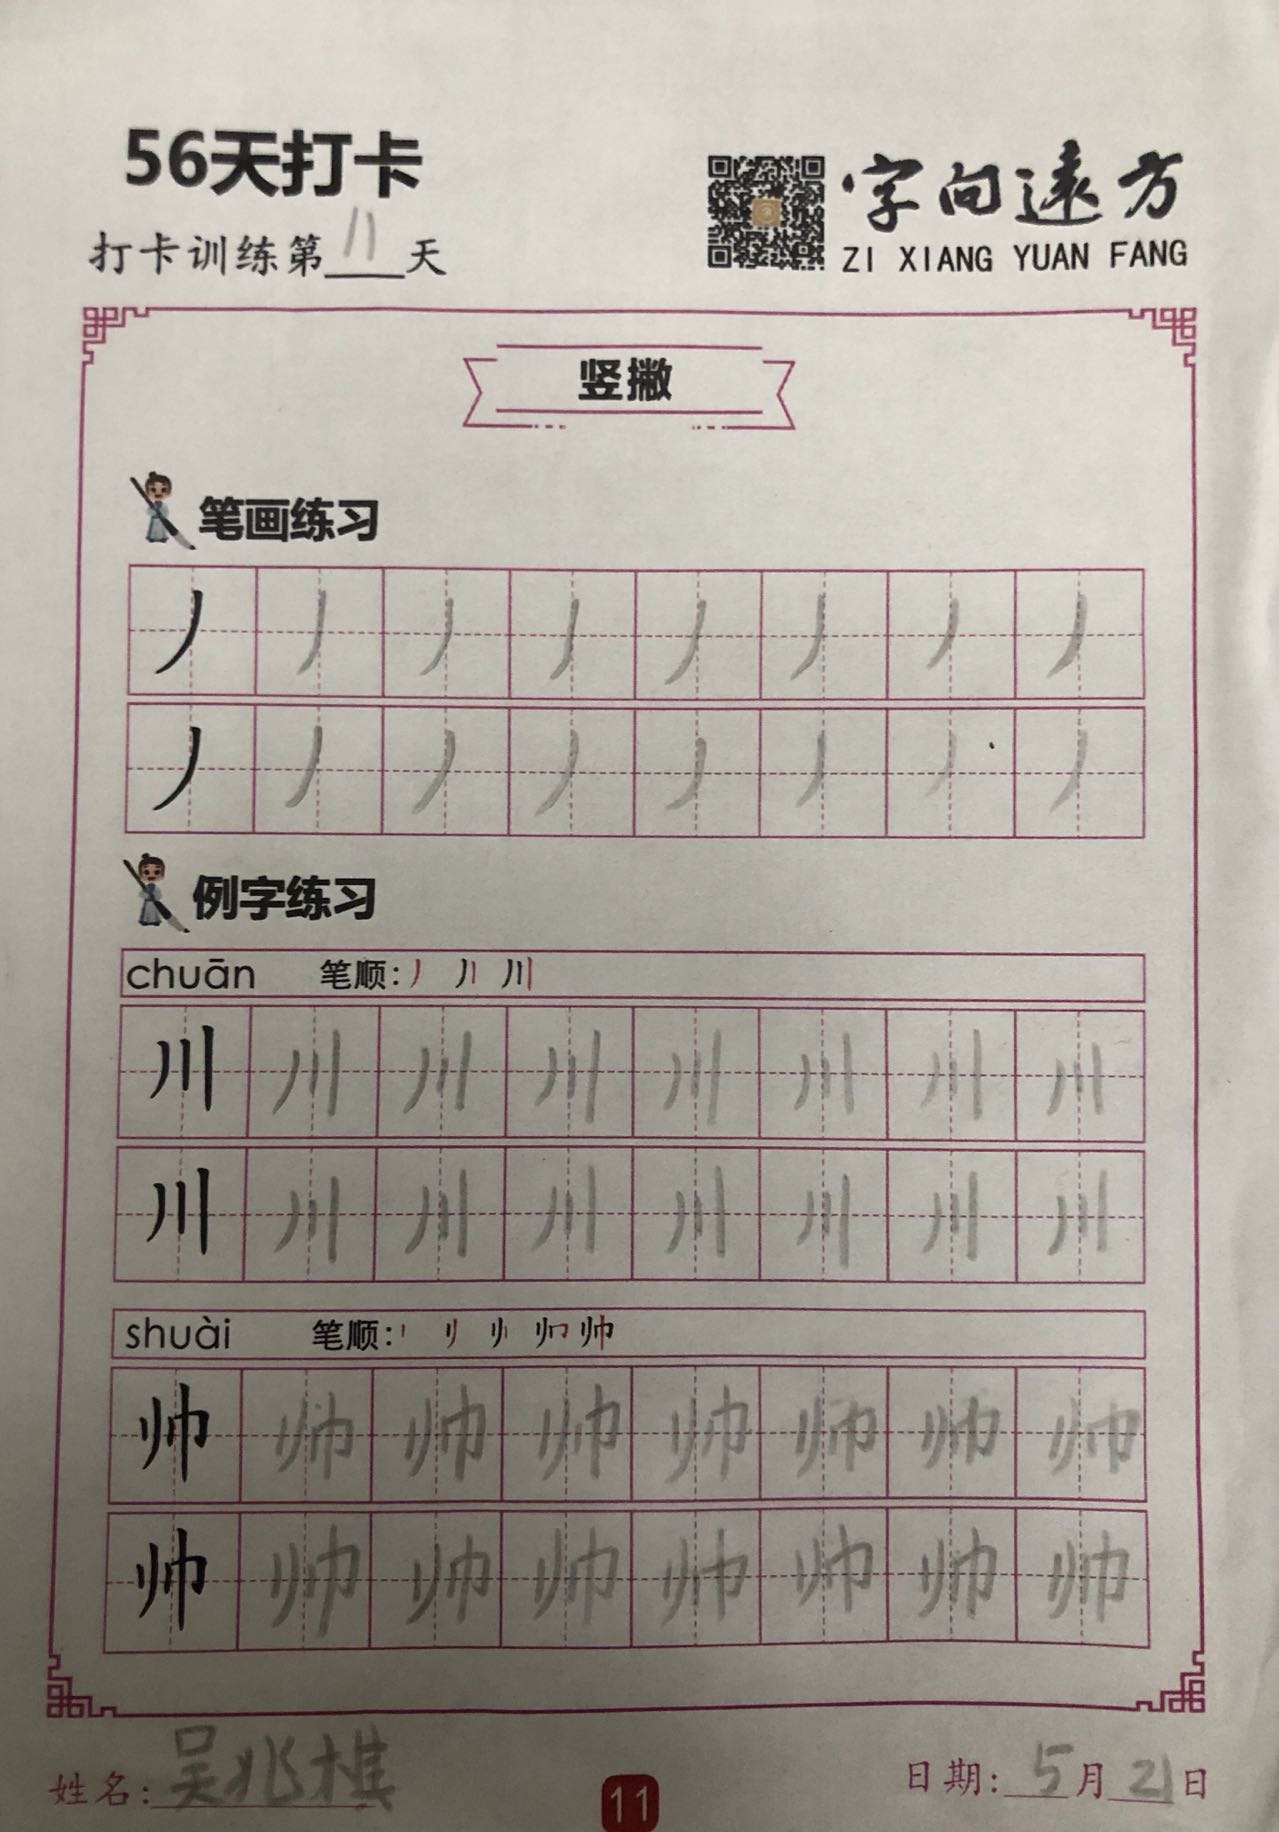 56天打卡
打卡训练第11天
字向遠方
ZI XIANG YUAN FANG
竖撇
笔画练习
丿 丿 丿 丿 丿 丿 丿 丿
丿 丿 丿 丿 丿 丿 丿 丿
例字练习
chuān 笔顺:
川 川 川 川 川 川 川 川
川 川 川 川 川 川 川 川
shuài 笔顺:
帅 帅 帅 帅 帅 帅 帅 帅
帅 帅 帅 帅 帅 帅 帅 帅
姓名:吴兆棋
11
日期:5月21日